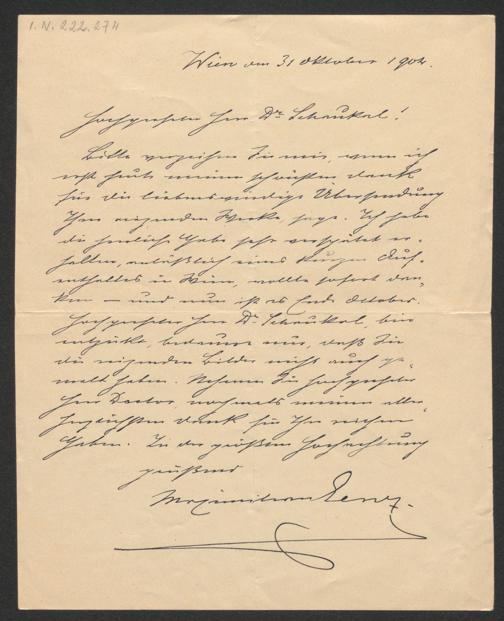 I. N. 222.274
Wien am 31 Oktober 1904.
Hochgeehrter Herr Dr. Schaukal!
Bitte verzeihen Sie mir, wenn ich
erst heute meinen schönsten Dank
für die liebenswürdige Übersendung
Ihrer reizenden Werke sage. Ich habe
die herrliche Gabe sehr verspätet er-
halten, anläßlich eines kurzen Auf-
enthaltes in Wien, wollte sofort dan-
ken – und nun ist es Ende October.
Hochgeehrter Herr Dr. Schaukal, bin
entzückt, bedaure nur, daß Sie
die reizenden Bilder nicht auch ge-
malt haben. Nehmen Sie hochgeehrter
Herr Doctor, nochmals meinen aller-
herzlichsten Dank für Ihre reichen
Gaben. In der größten Hochachtung
grüßend
Maximilian Lenz.